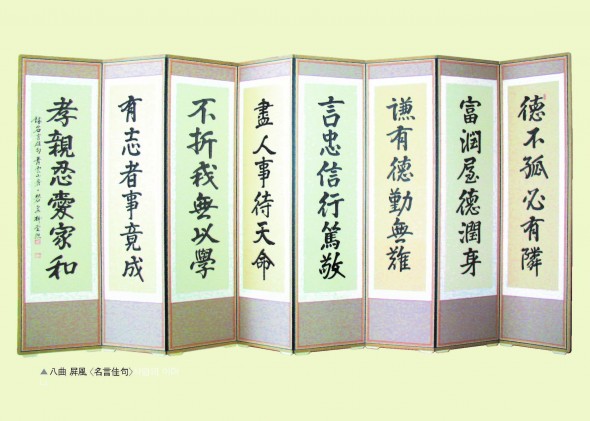 德不孤必有隣
富潤屋德潤身
謙有德勤無難
言忠信行篤敬
盡人事待天命
不折我無以學
有志者事竟成
孝親忍愛家和
錄名言佳句
▲八曲 屏風〈名言佳句〉